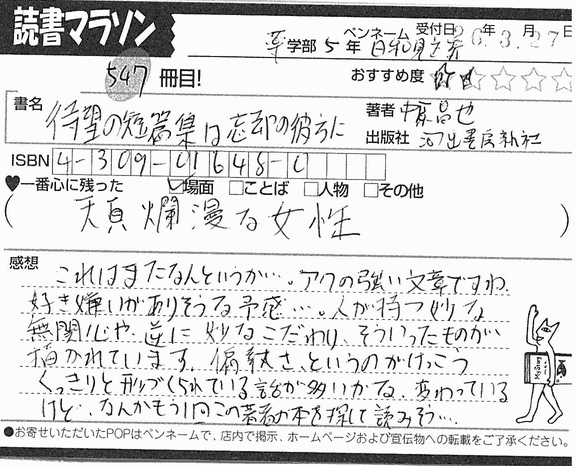 読書マラソン
ペンネーム 受付日26年3月27日
薬学部5年 日和見
547冊目!
おすすめ度 ★★☆☆☆
書名
待望の短篇集は忘却の彼方に
著者 中原昌也
出版社 河出書房新社
ISBN 4-309-01648-0
♥一番心に残った ☑場面 □ことば □人物 □その他
(天真爛漫な女性)
感想
これはまたなんというか…。アクの強い文章ですね。
好き嫌いがありそうな予感…。人が持つ妙な
無関心や、逆に妙なこだわり、そういったものが
描かれています。偏執さ、というのがけっこう
くっきりと形づくられている話が多いかな。変わっている
けど…、なんかもう1回この著者の本を探して読みそう…。
●お寄せいただいたPOPはペンネームで、店内で掲示、ホームページおよび宣伝物への転載をご了承ください。